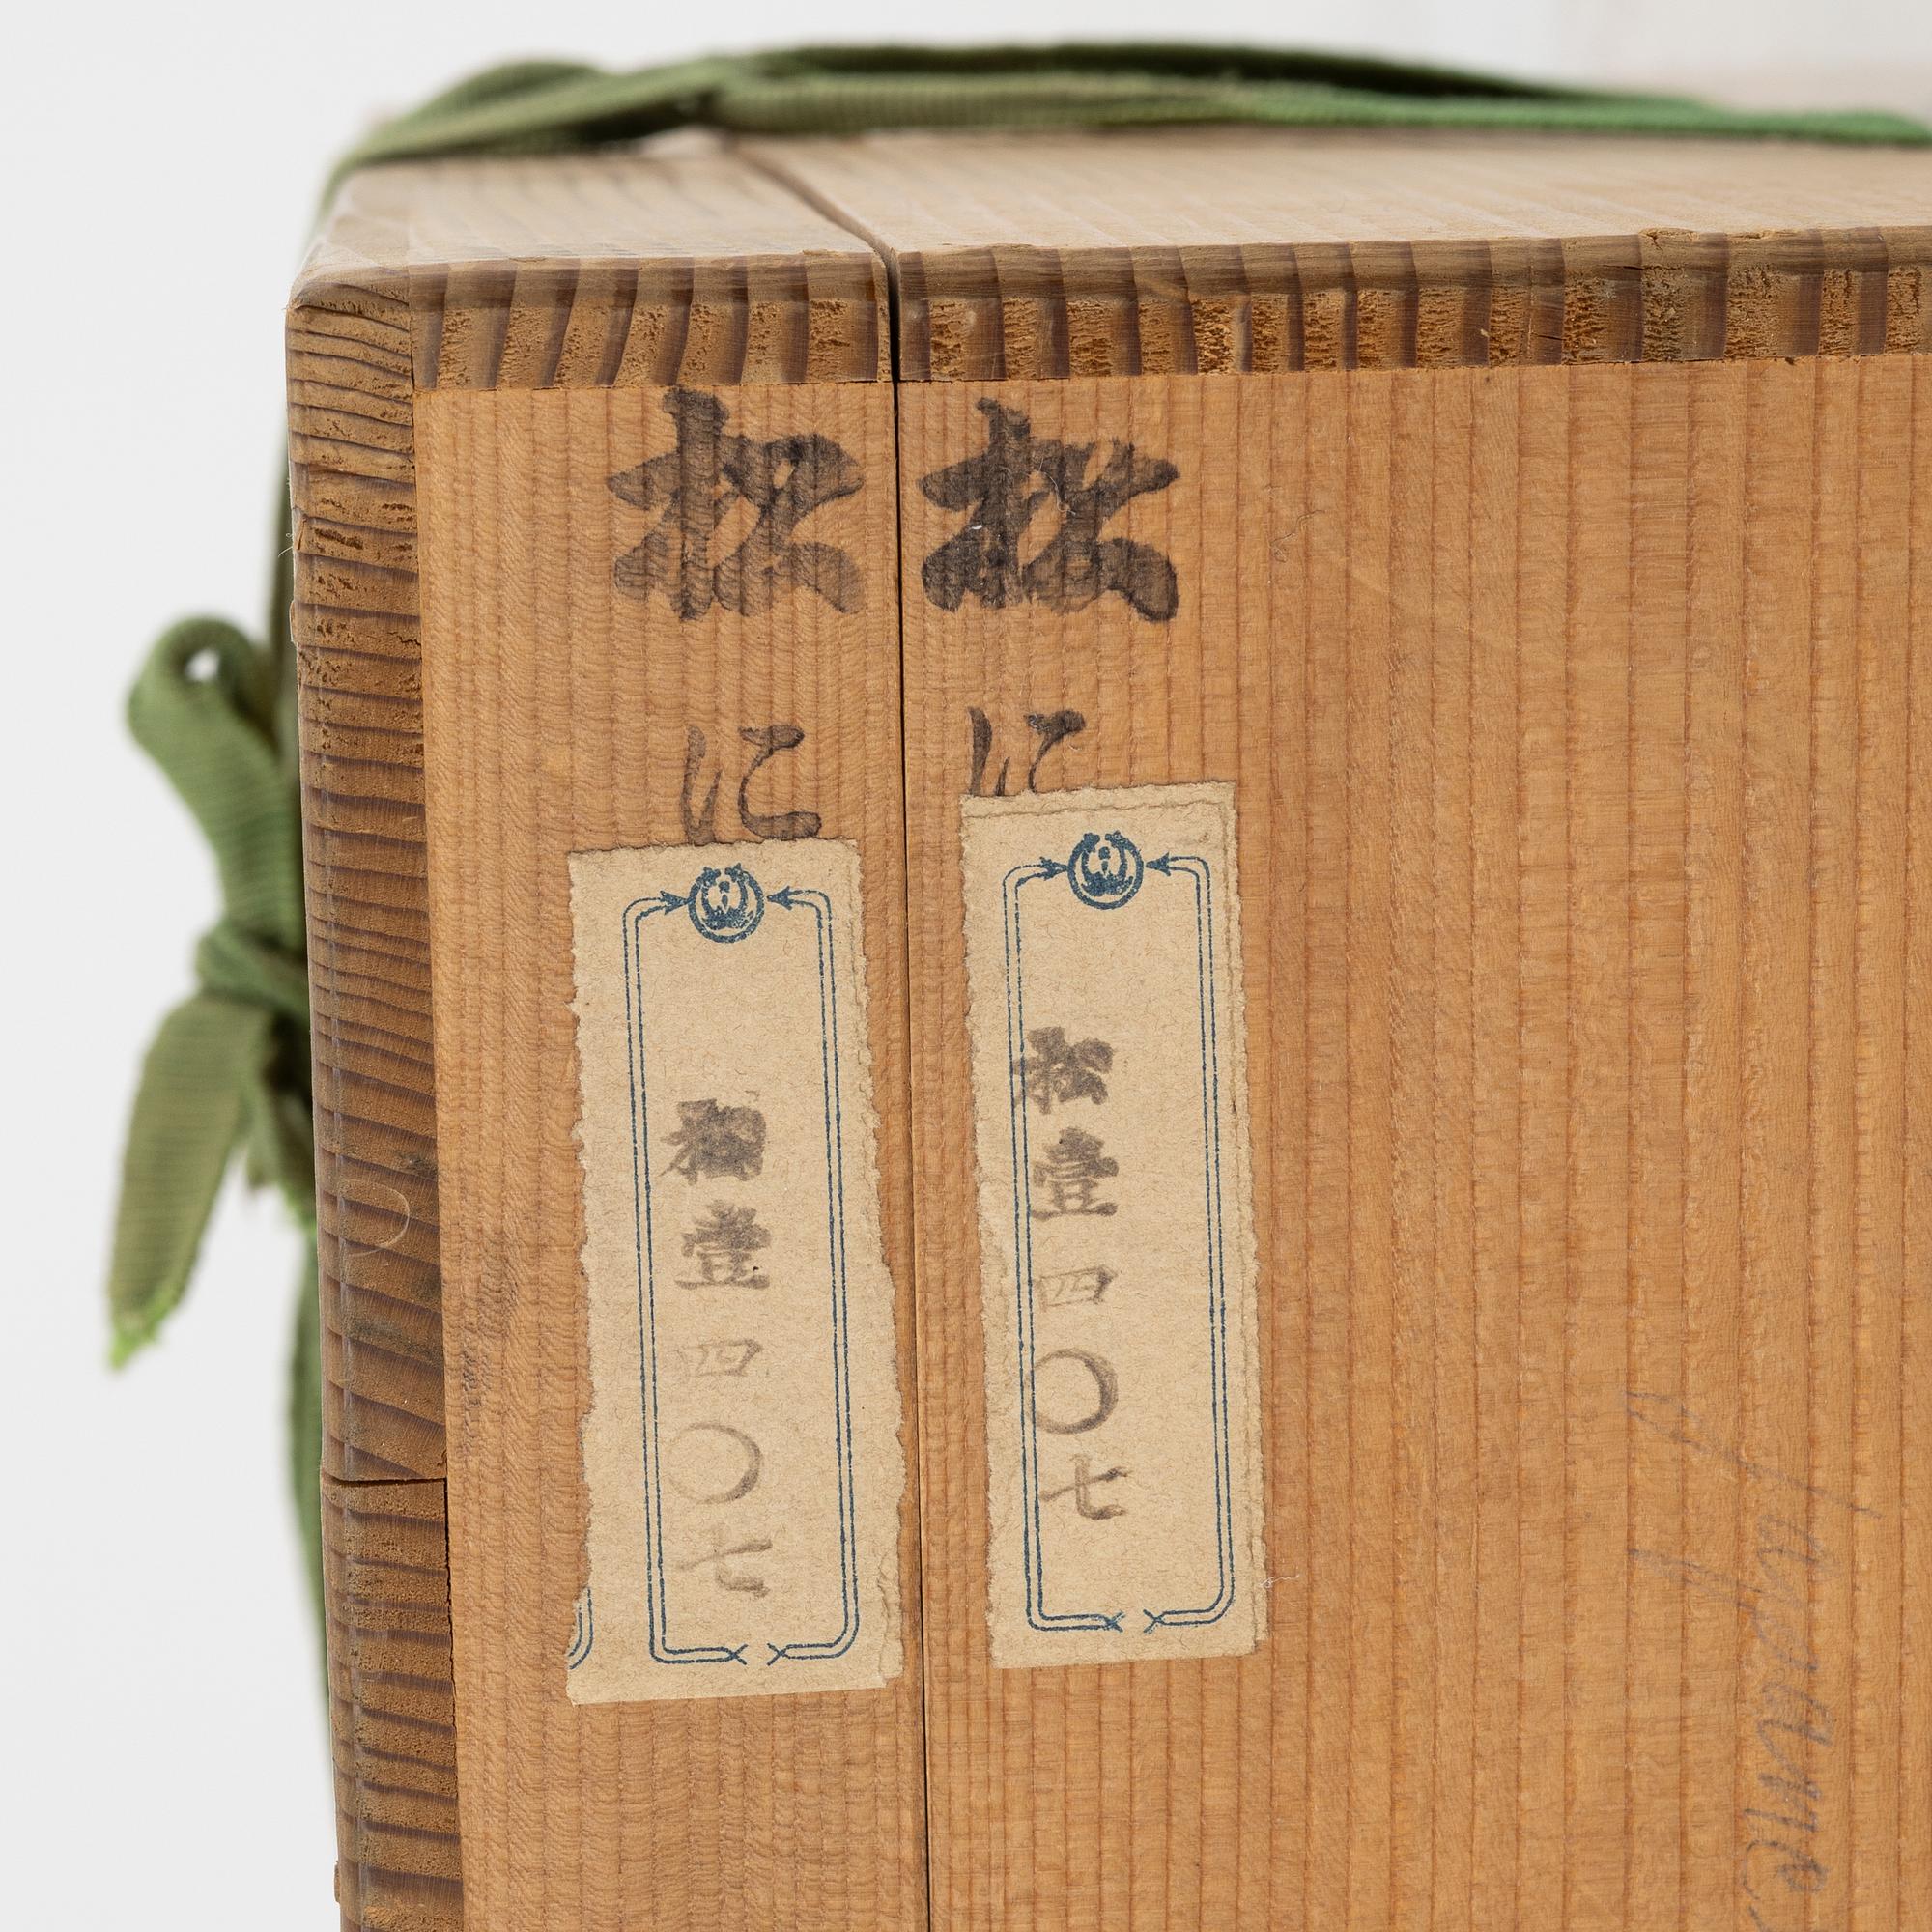 松に
松壹四〇七
松に
松壹四〇七